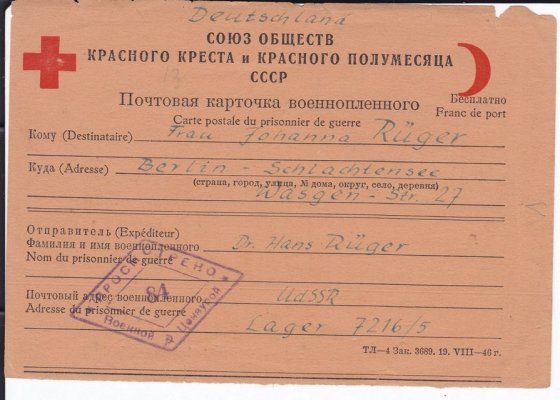 Deutschland
СОЮЗ ОБЩЕСТВ
КРАСНОГО КРЕСТА и КРАСНОГО ПОЛУМЕСЯЦА
СССР
13
Почтовая карточка военнопленного
Бесплатно
Carte postale du prisonnier de guerre
Franc de port
Кому (Destinataire) Frau Johanna Rüger
Куда (Adresse) Berlin - Schlachtensee
(страна, город, улица, № дома, округ, село, деревня)
Wasgen - Str. 27
Отправитель (Expéditeur)
Фамилия и имя военнопленного Dr. Hans Rüger
Nom du prisonnier de guerre
ПРОСМОТРЕНО
84
Военной Цензурой
Почтовый адрес военнопленного UdSSR
Adresse du prisonnier de guerre
Lager 7216/5
ТЛ—4 Зак. 3689. 19. VIII—46 г.